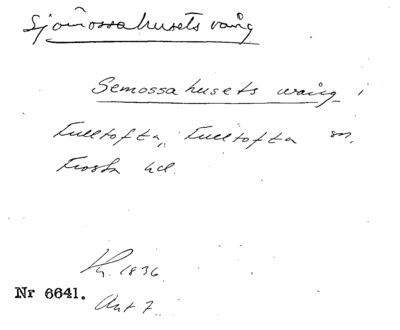 Sjömossahusets vång
Semossahusets wång i
Fulltofta, Fulltofta sn,
Frosta hd.
1836
Nr 6641.
Akt 7